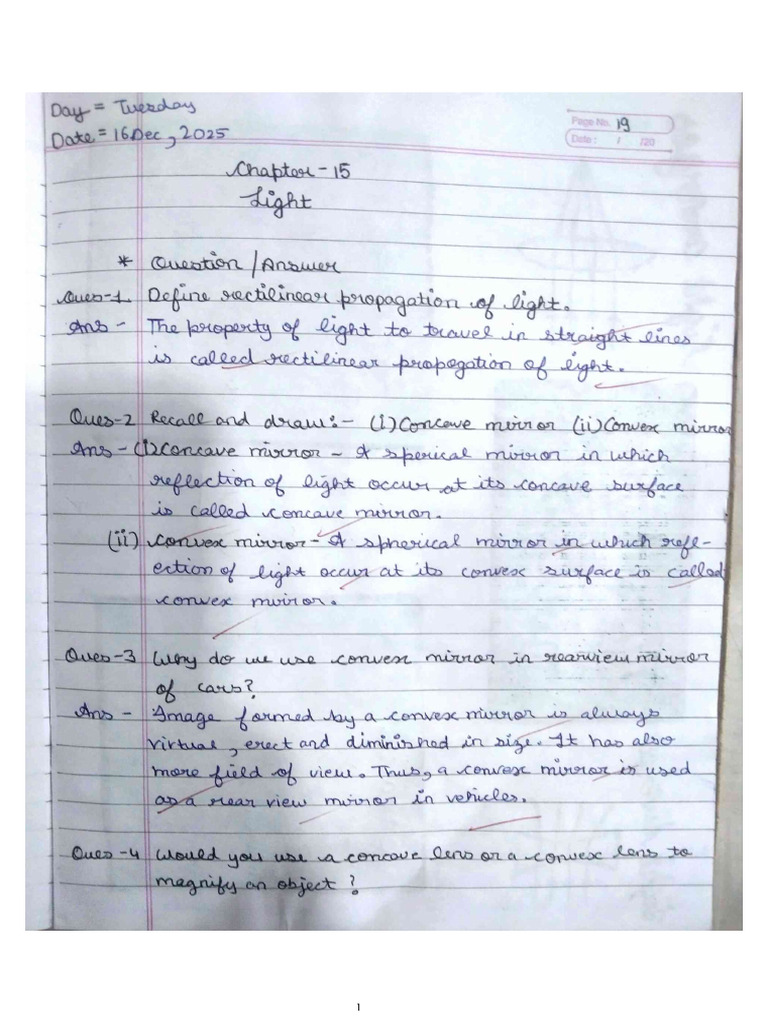 Day = Tuesday
Date = 16 Dec, 2025
Page No. 19
Date : / /20
Chapter - 15
Light
* Question / Answer
Ques-1 Define rectilinear propagation of light.
Ans - The property of light to travel in straight lines
is called rectilinear propogation of light.
Ques-2 Recall and draw:- (i) Concave mirror (ii) Convex mirror
Ans - (i) Concave mirror - A sperical mirror in which
reflection of light occur at its concave surface
is called concave mirror.
(ii) Convex mirror - A spherical mirror in which refl-
ection of light occur at its convex surface is called
convex mirror.
Ques-3 Why do we use convex mirror in rearview mirror
of cars?
Ans - Image formed by a convex mirror is always
virtual, erect and diminished in size. It has also
more field of view. Thus, a convex mirror is used
as a rear view mirror in vehicles.
Ques-4 Would you use a concave lens or a convex lens to
magnify an object?
1